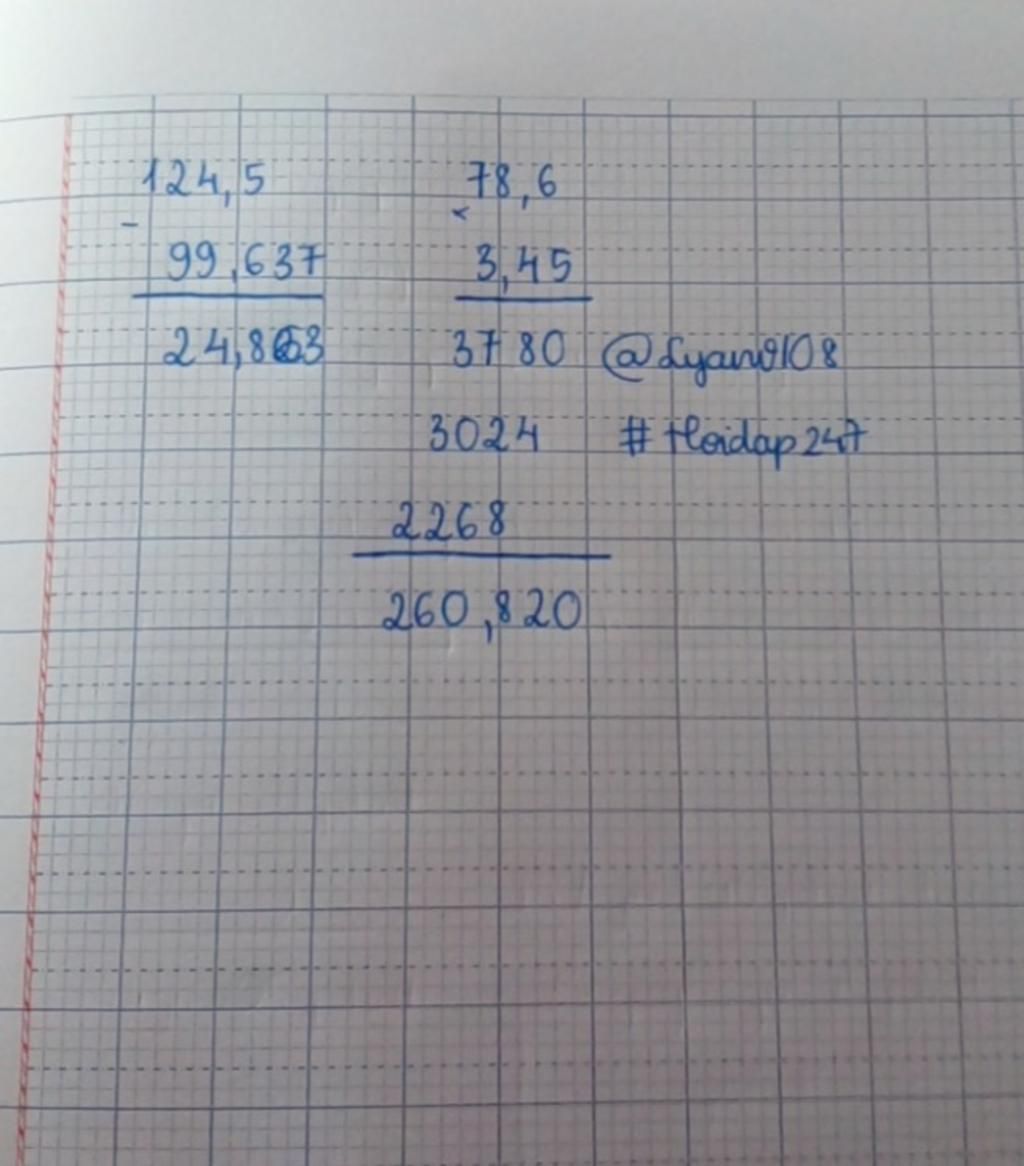 124,5
-
99,637
24,863
78,6
×
3,45
3780 @Lyand9108
3024 # Hoidap247
2268
260,820